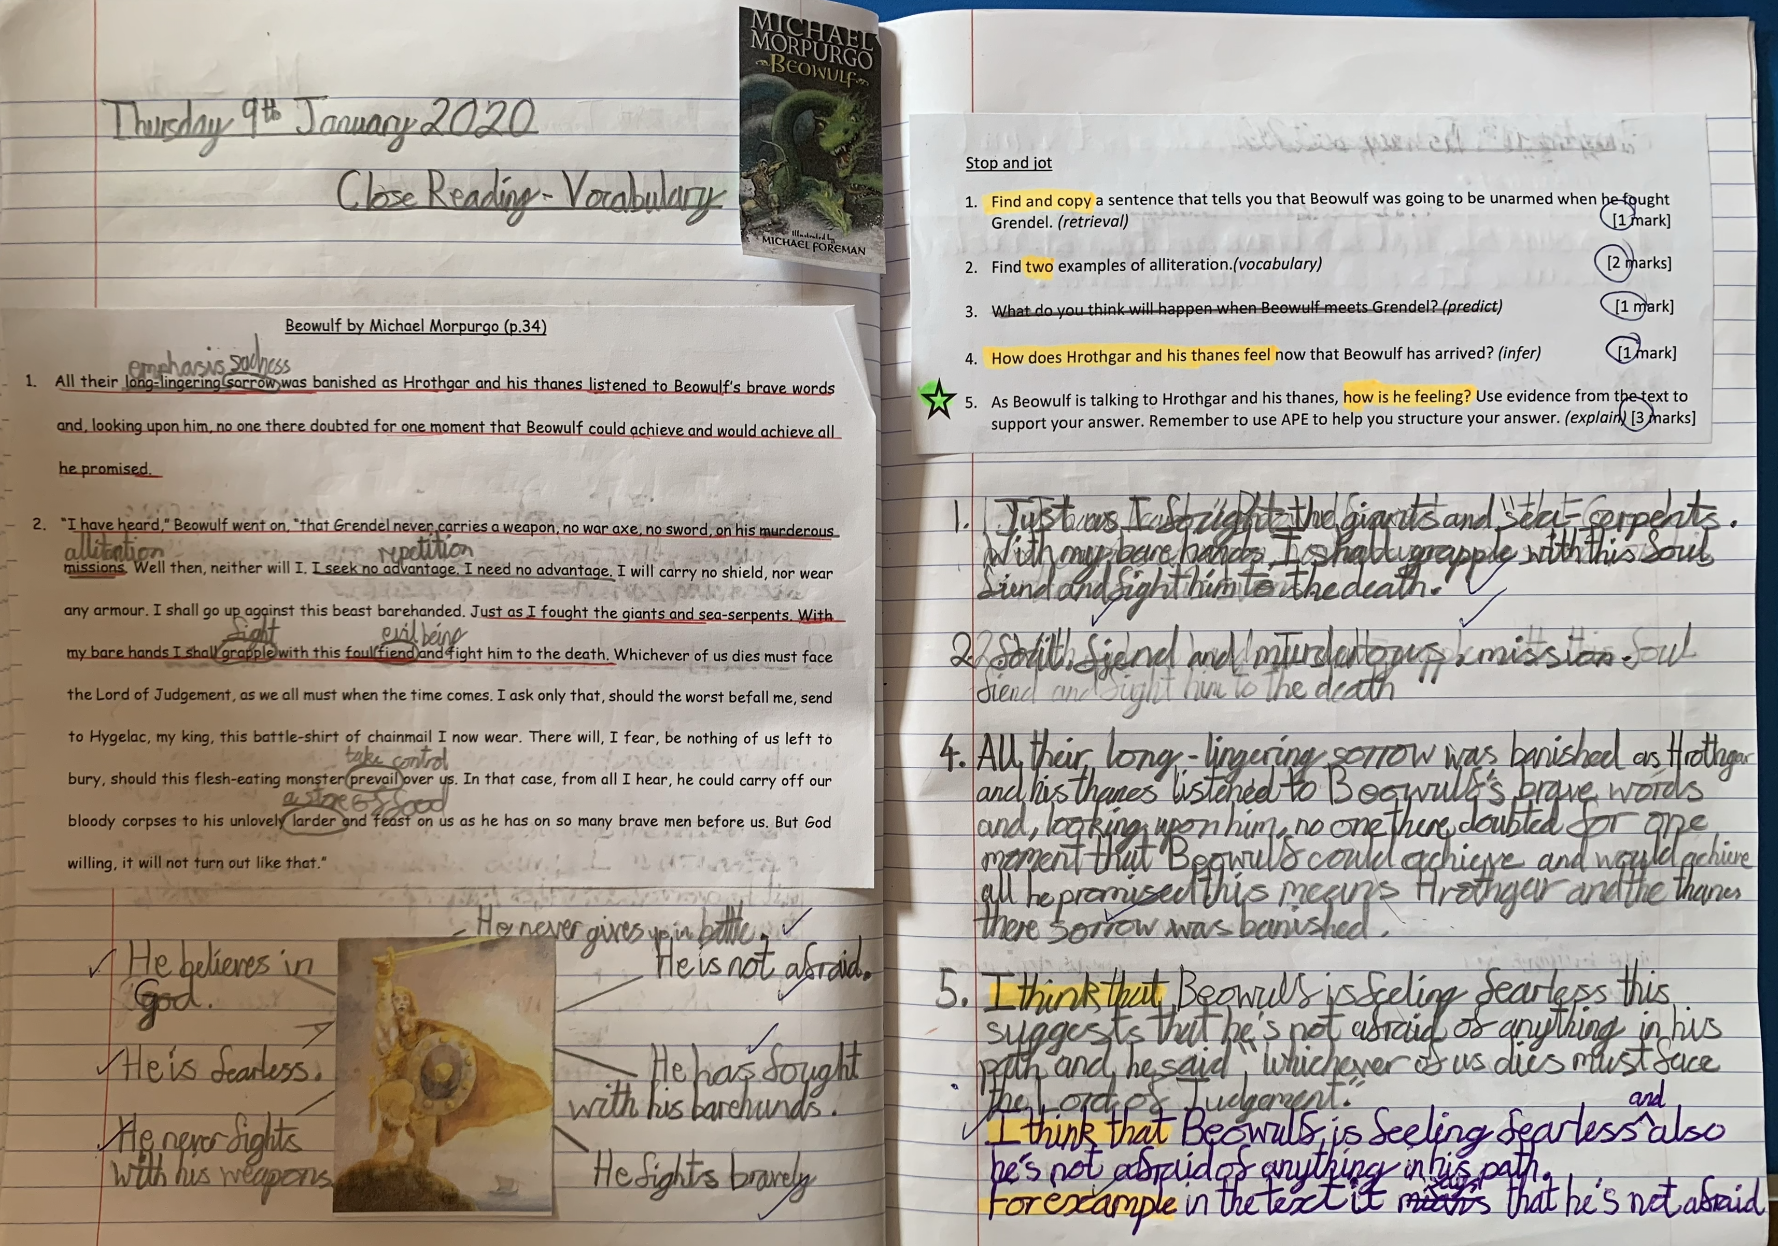 Thursday 9th January 2020
Close Reading - Vocabulary
MICHAEL
MORPURGO
BEOWULF
Illustrated by
MICHAEL FOREMAN
Beowulf by Michael Morpurgo (p.34)
emphasis sadness
1. All their long-lingering sorrow was banished as Hrothgar and his thanes listened to Beowulf's brave words
and, looking upon him, no one there doubted for one moment that Beowulf could achieve and would achieve all
he promised.
2. "I have heard," Beowulf went on, "that Grendel never carries a weapon, no war axe, no sword, on his murderous
allitention repetition
missions. Well then, neither will I. I seek no advantage. I need no advantage. I will carry no shield, nor wear
any armour. I shall go up against this beast barehanded. Just as I fought the giants and sea-serpents. With
fight evil being
my bare hands I shall grapple with this foul fiend and fight him to the death. Whichever of us dies must face
the Lord of Judgement, as we all must when the time comes. I ask only that, should the worst befall me, send
to Hygelac, my king, this battle-shirt of chainmail I now wear. There will, I fear, be nothing of us left to
take control
bury, should this flesh-eating monster prevail over us. In that case, from all I hear, he could carry off our
a store of food
bloody corpses to his unlovely larder and feast on us as he has on so many brave men before us. But God
willing, it will not turn out like that."
He never gives up in battle.
He believes in
God.
He is not afraid.
He is fearless.
He has fought
with his barehands.
He never fights
with his weapons
He fights bravely
Stop and jot
1. Find and copy a sentence that tells you that Beowulf was going to be unarmed when he fought
Grendel. (retrieval) [1 mark]
2. Find two examples of alliteration.(vocabulary) [2 marks]
3. What do you think will happen when Beowulf meets Grendel? (predict) [1 mark]
4. How does Hrothgar and his thanes feel now that Beowulf has arrived? (infer) [1 mark]
5. As Beowulf is talking to Hrothgar and his thanes, how is he feeling? Use evidence from the text to
support your answer. Remember to use APE to help you structure your answer. (explain) [3 marks]
1. Just as I fought the giants and sea-serpents.
With my bare hands I shall grapple with this foul
fiend and fight him to the death.
2. fiend and murderous mission foul
fiend and fight him to the death
4. All their long-lingering sorrow was banished as Hrothgar
and his thanes listened to Beowulf's brave words
and, looking upon him, no one there doubted for one
moment that Beowulf could achieve and would achieve
all he promised this means Hrothgar and the thanes
there sorrow was banished.
5. I think that Beowulf is feeling fearless this
suggests that he's not afraid of anything in his
path and he said "whichever of us dies must face
the Lord of Judgement."
and
I think that Beowulf is feeling fearless also
he's not afraid of anything in his path.
For example in the text it says that he's not afraid